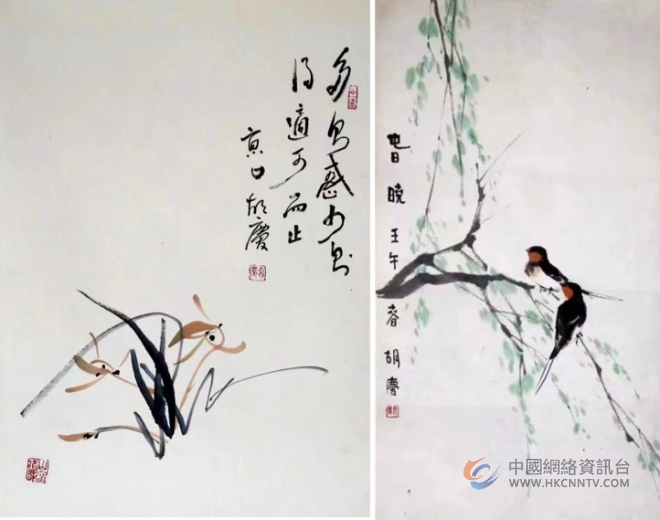 多则惑少则
得適可而止
胡慶
旾曉 壬午 春 胡慶
中國網絡資訊台
WWW.HKCNNTV.COM